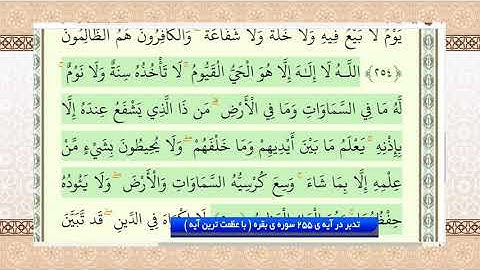 يَوْمٌ لَّا بَيْعٌ فِيهِ وَلَا خُلَّةٌ وَلَا شَفَاعَةٌ ۗ وَالْكَافِرُونَ هُمُ الظَّالِمُونَ
﴿٢٥٤﴾ اللَّـهُ لَا إِلَـٰهَ إِلَّا هُوَ الْحَيُّ الْقَيُّومُ ۚ لَا تَأْخُذُهُ سِنَةٌ وَلَا نَوْمٌ ۚ
لَّهُ مَا فِي السَّمَاوَاتِ وَمَا فِي الْأَرْضِ ۗ مَن ذَا الَّذِي يَشْفَعُ عِندَهُ إِلَّا
بِإِذْنِهِ ۚ يَعْلَمُ مَا بَيْنَ أَيْدِيهِمْ وَمَا خَلْفَهُمْ ۖ وَلَا يُحِيطُونَ بِشَيْءٍ مِّنْ
عِلْمِهِ إِلَّا بِمَا شَاءَ ۚ وَسِعَ كُرْسِيُّهُ السَّمَاوَاتِ وَالْأَرْضَ ۖ وَلَا يَئُودُهُ
حِفْظُهُمَا ۚ الدِّينِ ۖ قَد تَّبَيَّنَ
تدبر در آیه ی ۲۵۵ سوره ی بقره ( با عظمت ترین آیه )